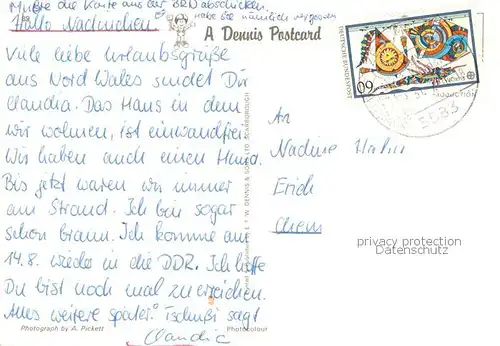 Mußte die Karte aus der BRD abschicken.
habe sie nämlich vergessen
Hallo Nadinchen!
A Dennis Postcard
Viele liebe Urlaubsgrüße
aus Nord Wales sendet Dir
Claudia. Das Haus in dem
wir wohnen, ist einwandfrei.
Wir haben auch einen Hund.
Bis jetzt waren wir immer
am Strand. Ich bin sogar
schon braun. Ich komme am
14.8. wieder in die DDR. Ich hoffe
Du bist noch mal zu erreichen.
Alles weitere später. Tschüßi sagt
Claudia
Photograph by A. Pickett
Photocolour
DENNIS & SONS LTD. SCARBOROUGH
DEUTSCHE BUNDESPOST
60
5583
An
Nadine Hahn
Erich
Chem
privacy protection
Datenschutz